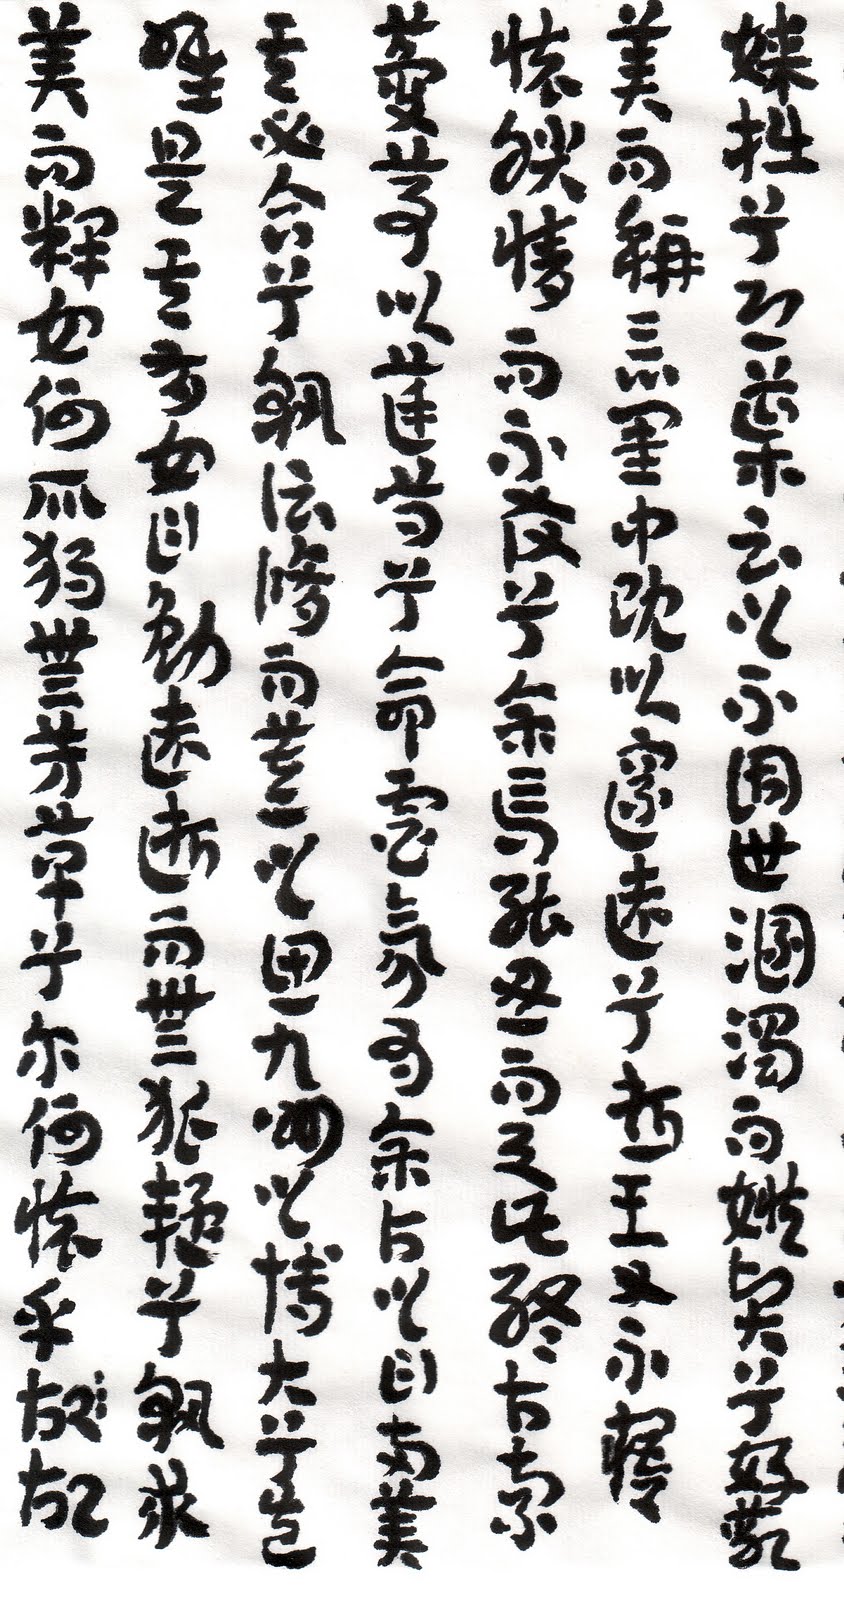 媒拙兮恐導言之不固世溷濁而嫉賢兮好蔽
美而稱惡閨中既以邃遠兮哲王又不寤
懷朕情而不發兮余焉能忍而與此終古索
藑茅以筳篿兮命靈氛爲余占之曰兩美
其必合兮孰信脩而慕之思九州之博大兮豈
唯是其有女曰勉遠逝而無狐疑兮孰求
美而釋女何所獨無芳草兮尔何懷乎故故